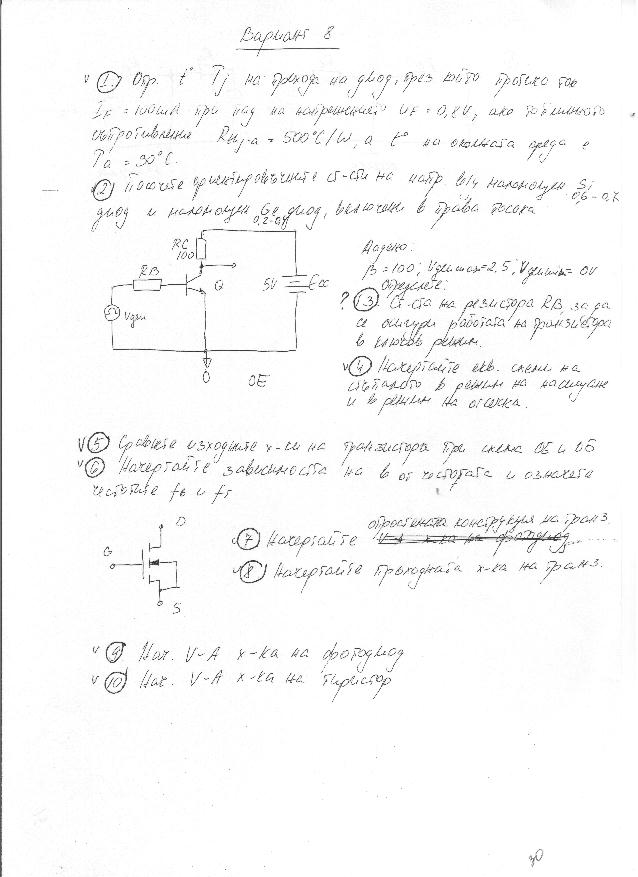 Вариант 8
v 1. Опр. t° Tj на прехода на диод, през който протича ток
IF = 100mA при пад на напрежението UF = 0,8V, ако топлинното
съпротивление Rthj-a = 500°C/W, а t° на околната среда е
Ta = 30°C.
2 Посочете ориентировъчните ст-сти на напр. в/у маломощен Si
0,6-0,7
диод и маломощен Ge диод, включени в права посока
0,2-0,4
RC
100
RB
Q
Vgen
5V
Ecc
0
OE
Дадено:
β=100; Vgen max=2,5; Vgen min=0V
Определете:
? 3 Ст-ста на резистора RB за да
се осигури работата на транзистора
в ключов режим.
v 4 Начертайте екв. схеми на
стъпалото в режим на насищане
и в режим на отсечка.
v 5 Сравнете изходните х-ки на транзистора при схема ОЕ и ОБ
v 6 Начертайте зависимостта на β от честотата и означете
честотите fβ и fT
D
G
S
опростената конструкция на транз.
v 7 Начертайте V-A х-ка на фотодиод
v 8 Начертайте преходната х-ка на транз.
v 9 Нач. V-A х-ка на фотодиод
v 10 Нач. V-A х-ка на тиристор